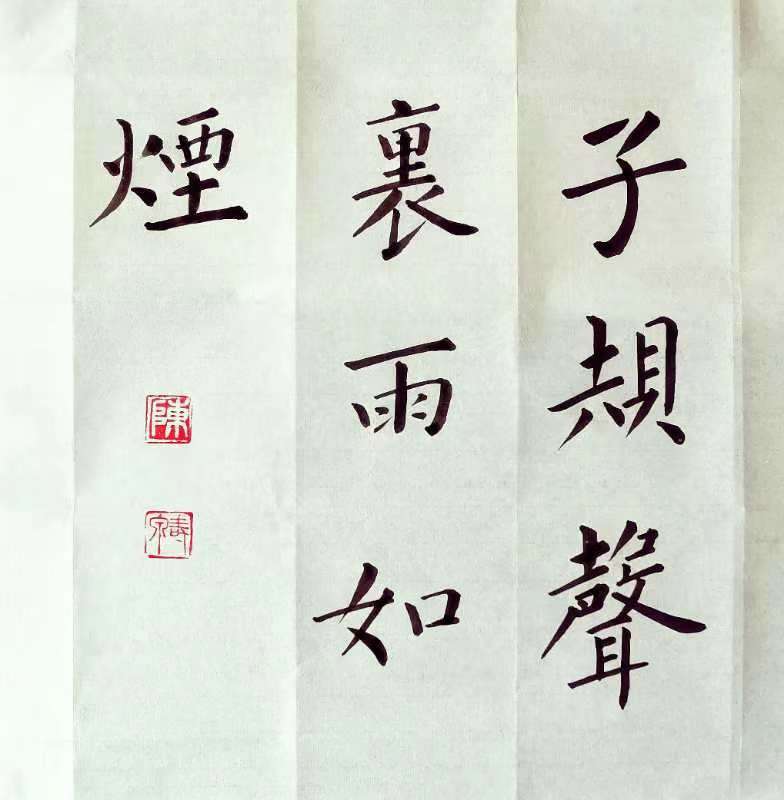 子規聲
裏雨如
煙
陳